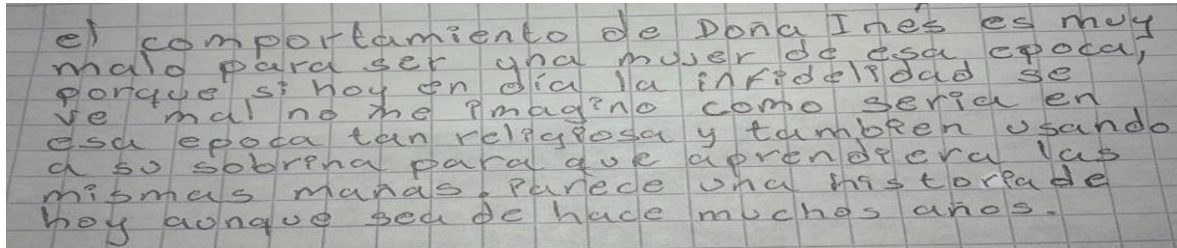 el comportamiento de Doña Inés es muy
malo para ser una mujer de esa epoca,
porque si hoy en dia la infidelidad se
ve mal no me imagino como seria en
esa epoca tan religiosa y tambien usando
a su sobrina para que aprendiera las
mismas mañas. Parece una historia de
hoy aunque sea de hace muchos años.